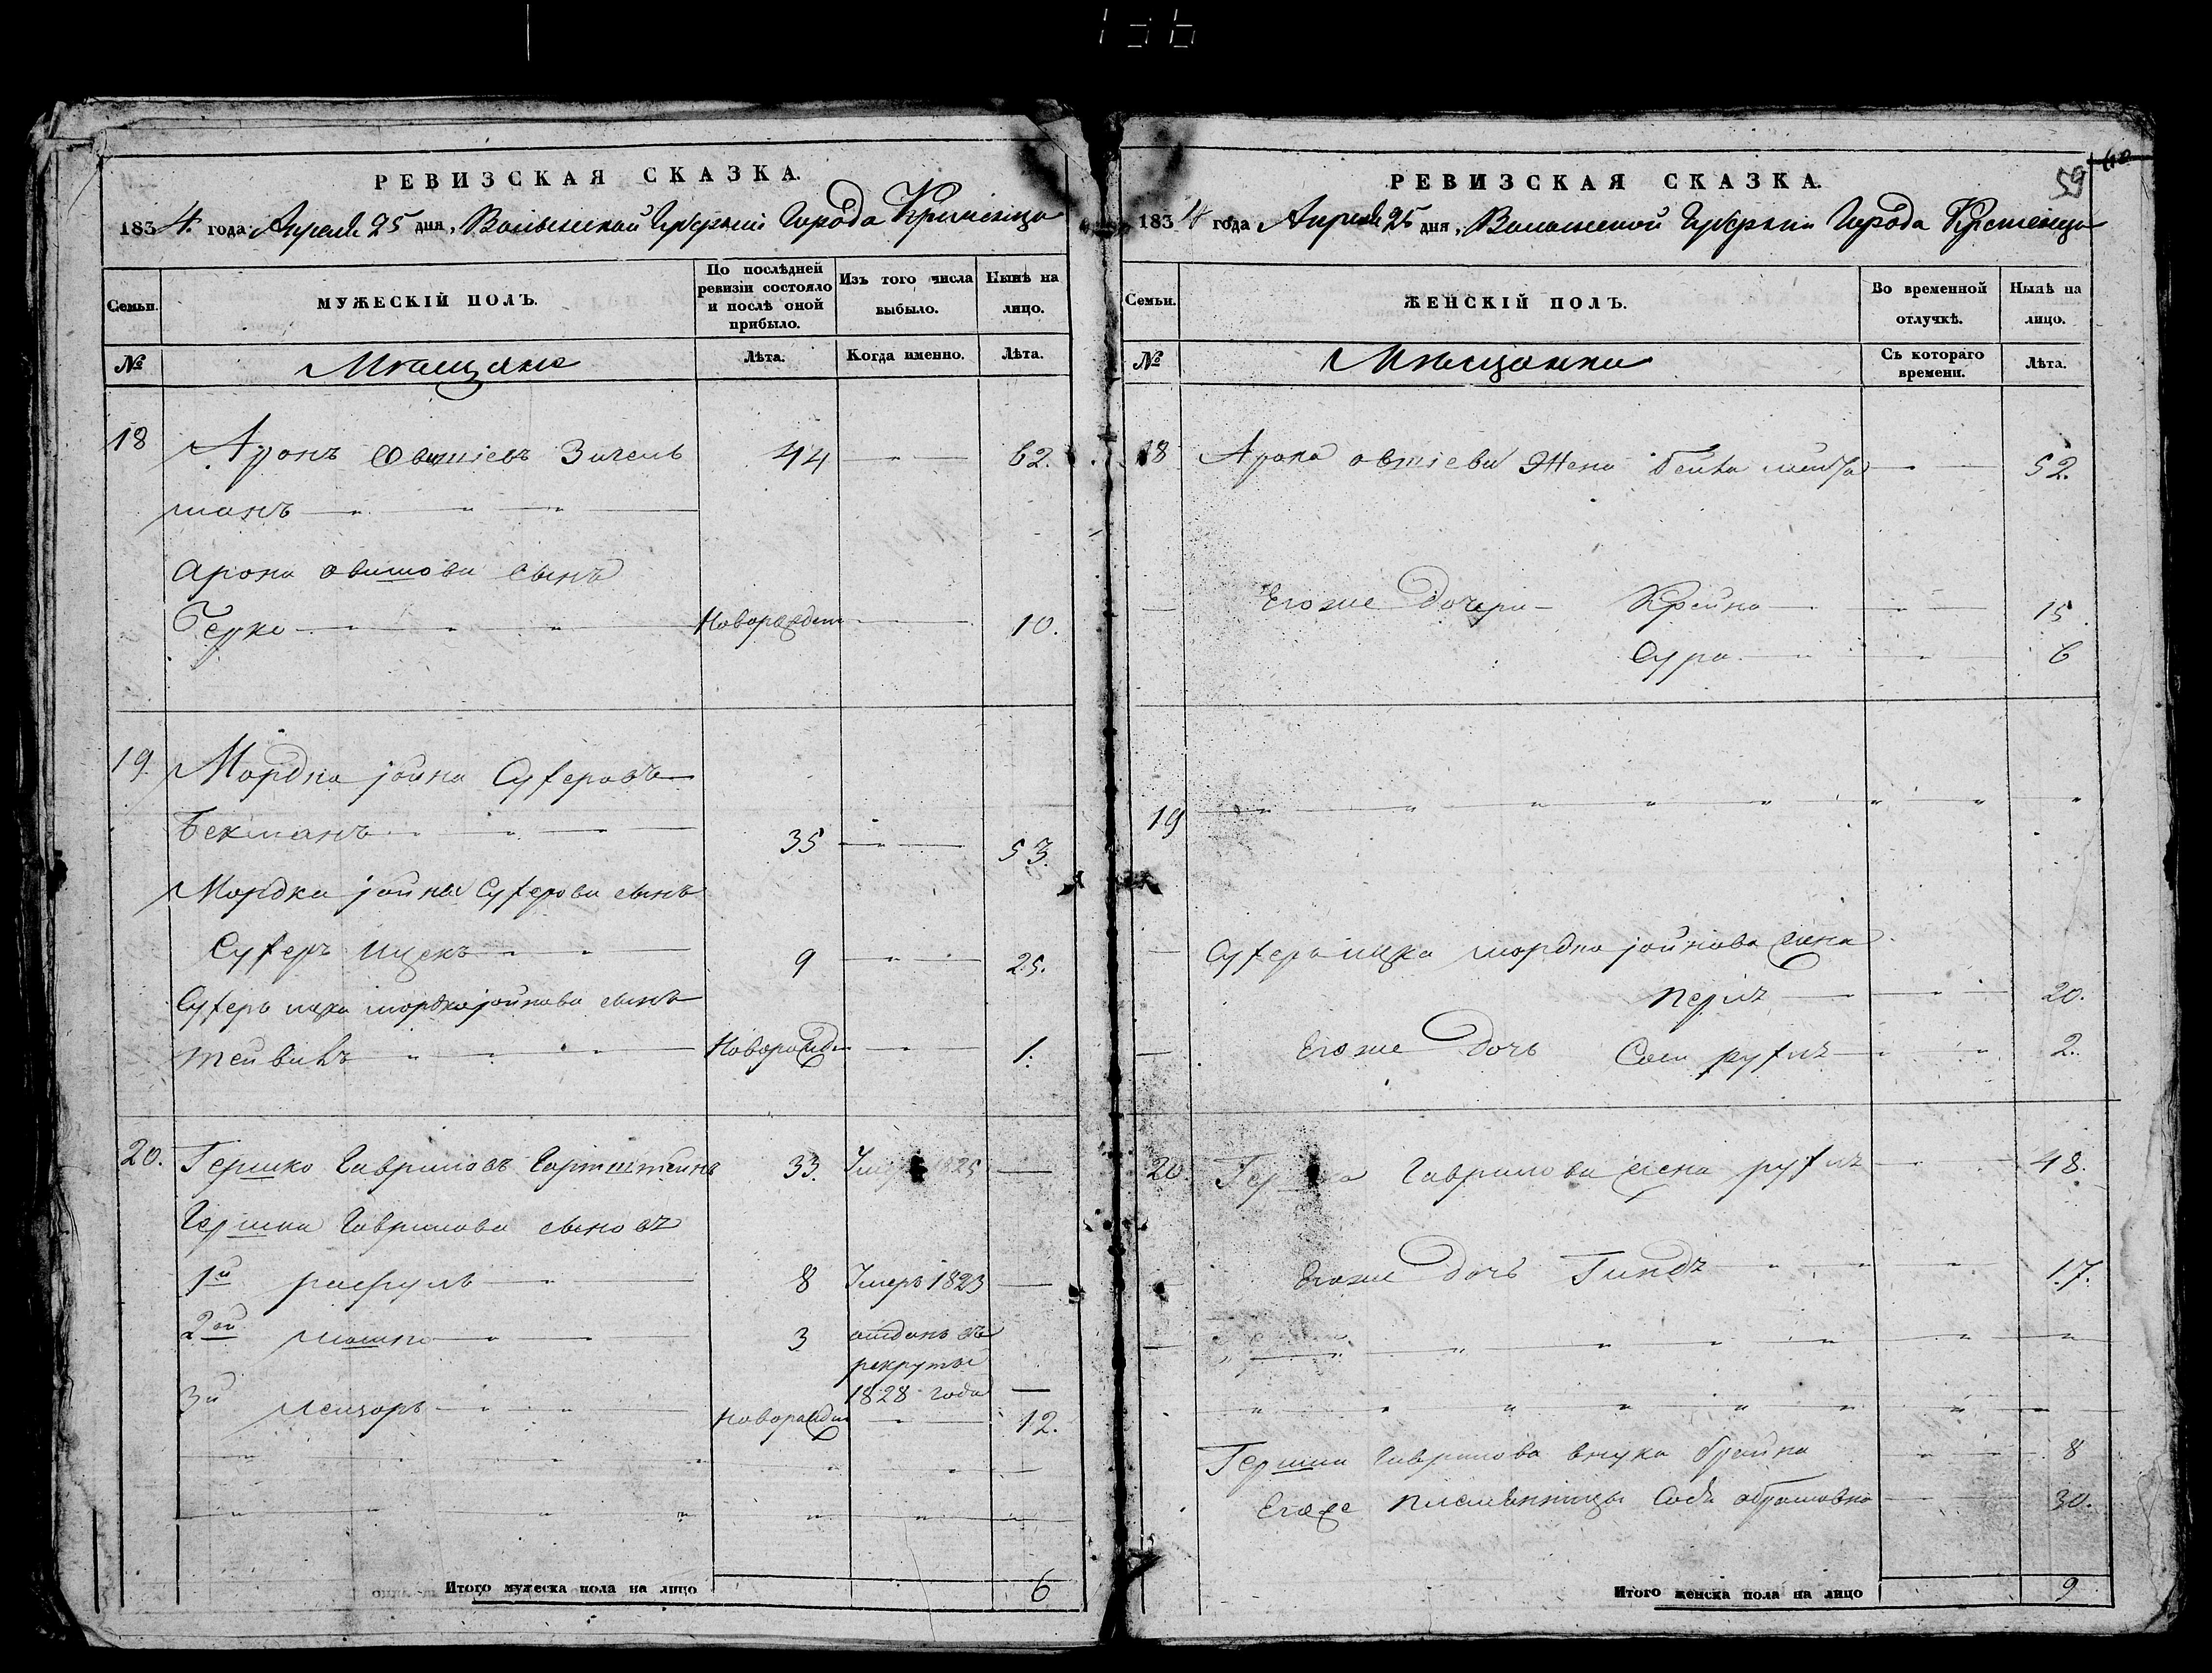 136
РЕВИЗСКАЯ СКАЗКА.
1834 года Апреля 25 дня, Волынской Губернии Города Кременца
Семьи. МУЖЕСКІЙ ПОЛЪ. По послѣдней ревизіи состояло и послѣ оной прибыло. Изъ того числа выбыло. Нынѣ на лицо.
№ Мѣщане Лѣта. Когда именно. Лѣта.
18 Аронъ Овшіевъ Зигель 44 62.
манъ
Арона овшіова сынъ
Берко Новорожден 10.
19. Мордко Іойна Суферовъ
Бекманъ 35 53.
Мордка Іойна Суферова сынъ
Суферъ Ицекъ 9 25.
Суферъ ицка мордкоіойнова сынъ
Лейвикъ Новорожде 1.
20. Гершко Гавриловъ 33. Умеръ 1825
Гершка Гаврилова сыновъ
1й рафуль 8 Умеръ 1823
2ой Мошко 3 отданъ въ
рекруты
1828 года
3й Лейзоръ Новорожден 12.
Итого мужеска пола на лицо 6
59
РЕВИЗСКАЯ СКАЗКА.
1834 года Апреля 25 дня, Волынской Губернии Города Кременца
Семьи. ЖЕНСКІЙ ПОЛЪ. Во временной отлучкѣ. Нынѣ на лицо.
№ Мѣщанки Съ котораго времени. Лѣта.
18 Арона овшіева Жена Бейла 52.
Егоже Дочери Крейна 15
Сура 6
19
Суфера ицка мордко іойнова жена
Перлъ 20.
Егоже Дочь Соси рухлъ 2.
20 Гершка Гаврилова жена рухлъ 48.
Егоже Дочь Гиндъ 17.
Гершка Гаврилова внука брайна 8
Егоже племянница Собъ абрамовна 30.
Итого женска пола на лицо 9